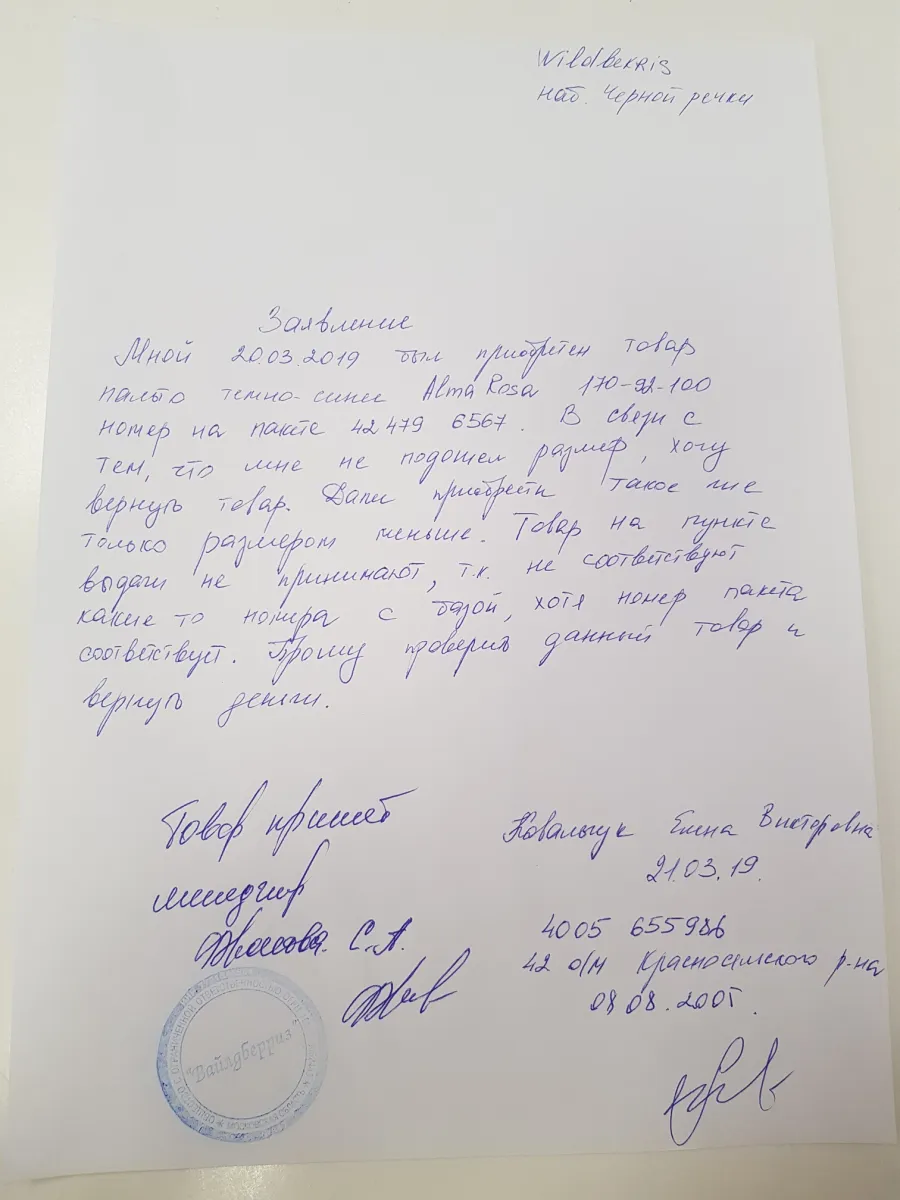 Wildberris
наб. Черной речки
Заявление
Мной 20.03.2019 был приобретен товар
пальто темно-синее Alma Rosa 170-92-100
номер на пакете 42479 6567. В связи с
тем, что мне не подошел размер, хочу
вернуть товар. Далее приобрести такое же
только размером меньше. Товар на пункте
выдачи не принимают, т.к. не соответствуют
какие то номера с базой, хотя номер пакета
соответствует. Прошу проверить данный товар и
вернуть деньги.
Товар примет
менеджер
С.А.
Ковальчук Елена Викторовна
21.03.19.
4005 655986
42 о/м Красносельского р-на
08 08.2005.
"Вайлдберриз"